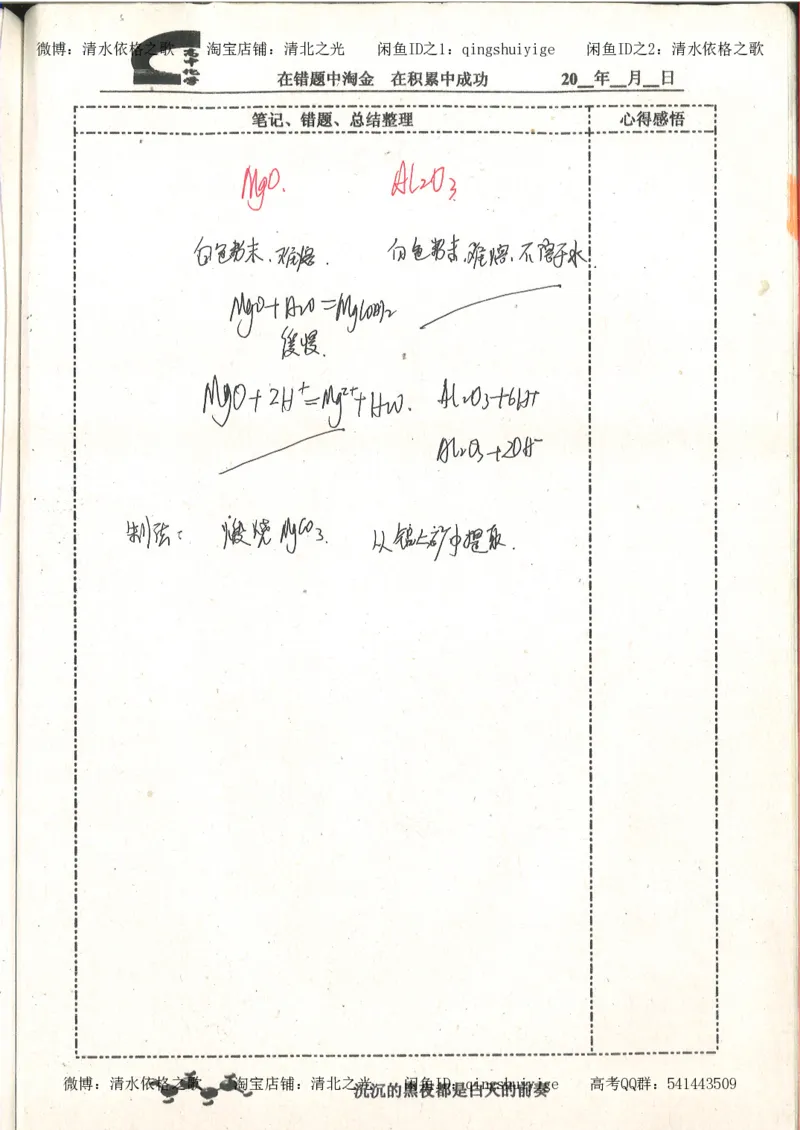 微博：清水依格之歌 淘宝店铺：清北之光 闲鱼ID之1：qingshuiyige 闲鱼ID之2：清水依格之歌
高中化学
在错题中淘金 在积累中成功 20__年__月__日
笔记、错题、总结整理 心得感悟
MgO. Al2O3
白色粉末、难熔. 白色粉末,难熔,不溶于水.
MgO+H2O=Mg(OH)2
缓慢.
MgO+2H+=Mg2++H2O. Al2O3+6H+
Al2O3+2OH-
制法： 煅烧MgCO3. 从铝土矿中提取.
微博：清水依格之歌 淘宝店铺：清北之光 闲鱼ID：qingshuiyige 高考QQ群：541443509
沉沉的黑夜都是白天的前奏